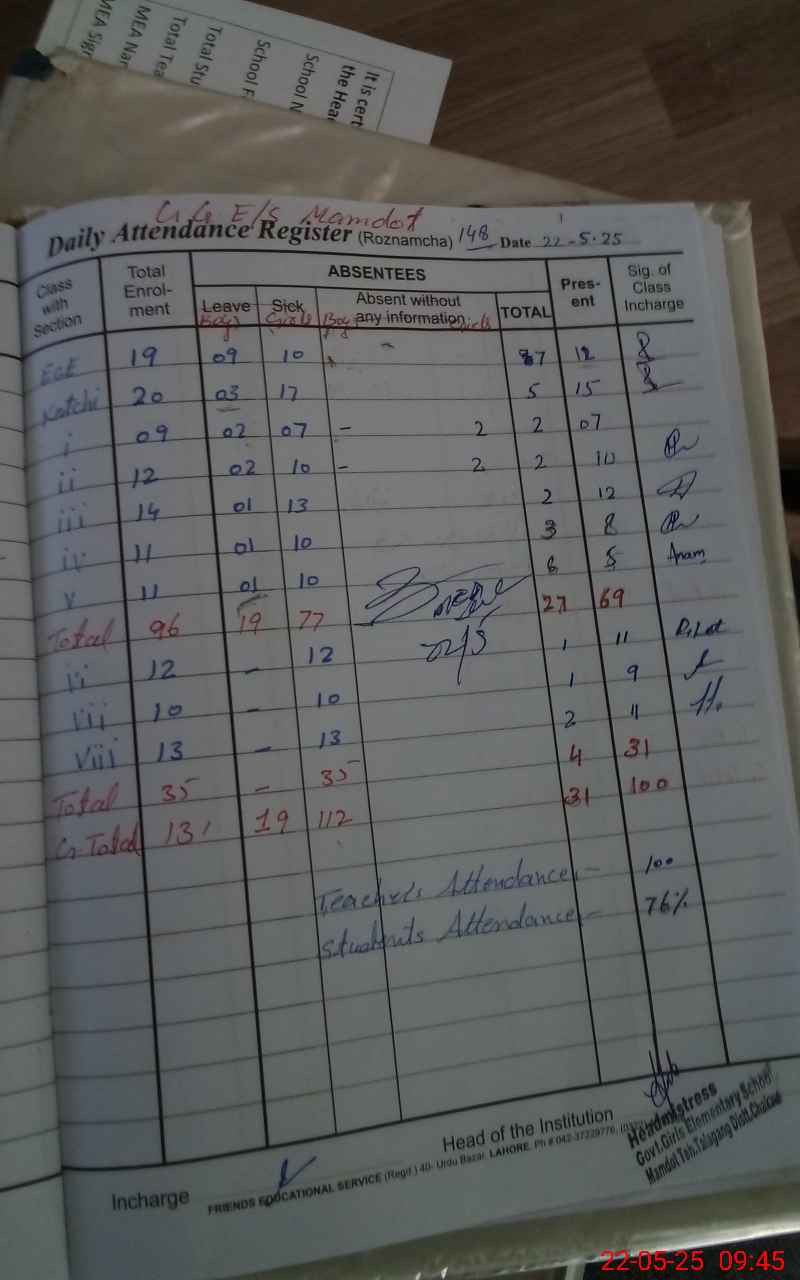 It is cert
the Hea
School N
School F
Total Stu
Total Tea
MEA Nar
MEA Sign
G G E/S Mamdot
Daily Attendance Register (Roznamcha) 148 Date 22-5-25
Class with Section Total Enrol-ment ABSENTEES Pres-ent Sig. of Class Incharge
Leave Sick Absent without any information TOTAL
Boys Girls Boy Girls
ECE 19 09 10 7 12
Katchi 20 03 17 5 15
i 09 02 07 - 2 2 07
ii 12 02 10 - 2 2 10
iii 14 01 13 2 12
iv 11 01 10 3 8
v 11 01 10 6 5 Anam
Total 96 19 77 27 69
22/5
vi 12 - 12 1 11
vii 10 - 10 1 9
viii 13 - 13 2 11
Total 35 - 35 4 31
G Total 131 19 112 31 100
Teacher's Attendance - 100
Students Attendance - 76%
Head of the Institution
Headmistress
Govt.Girls Elementary School
Mamdot Teh.Talagang Distt.Chakwal
Incharge
FRIENDS EDUCATIONAL SERVICE (Regd.) 40- Urdu Bazar, LAHORE. Ph # 042-37229776,
22-05-25 09:45